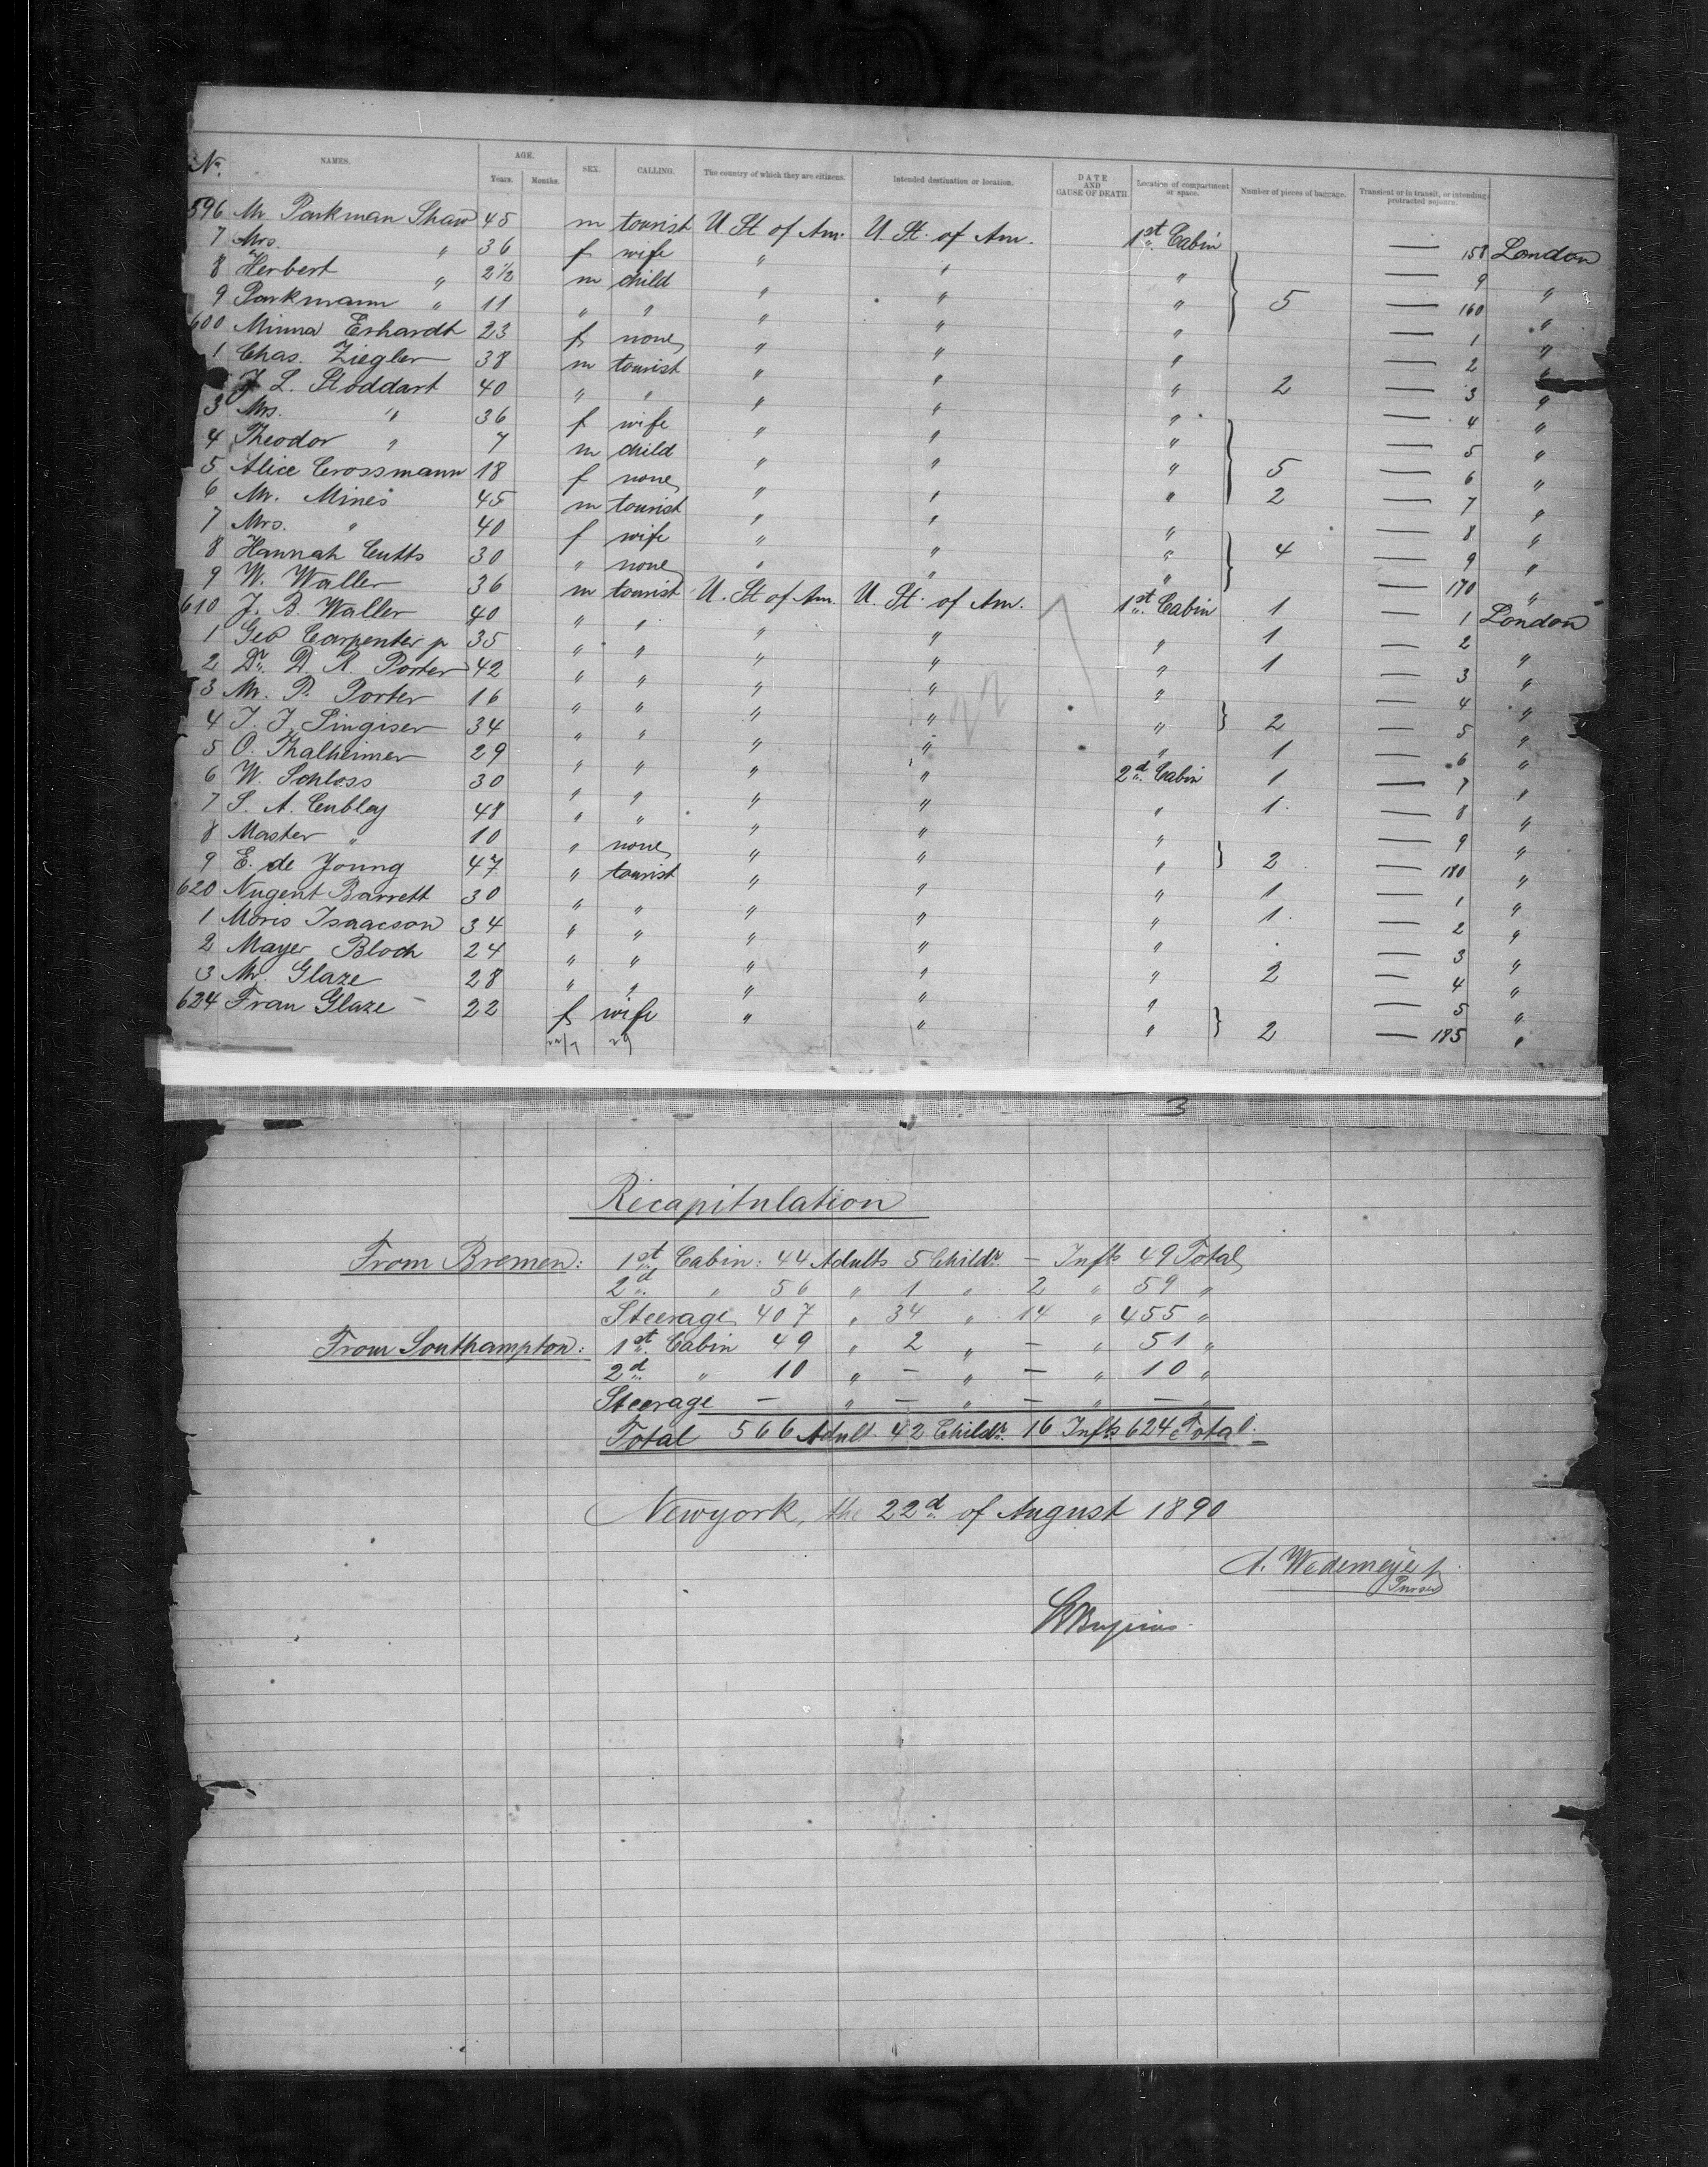 No. NAMES. AGE. Years. Months. SEX. CALLING. The country of which they are citizens. Intended destination or location. DATE AND CAUSE OF DEATH. Location of compartment or space. Number of pieces of baggage. Transient or in transit, or intending protracted sojourn.
596 Mr. Parkman Shaw 45 m tourist U. St. of Am. U. St. of Am. 1st Cabin — 158 London
7 Mrs. " 36 f wife " " " — 9 "
8 Herbert " 2½ m child " " " 5 — 160 "
9 Parkmann " 11 " " " " " — 1 "
600 Minna Erhardt 23 f none " " " — 2 "
1 Chas. Ziegler 38 m tourist " " " 2 — 3 "
J. L. Stoddart 40 " " " " " — 4 "
3 Mrs. " 36 f wife " " " — 5 "
4 Theodor " 7 m child " " " 5 — 6 "
5 Alice Crossmann 18 f none " " " 2 — 7 "
6 Mr. Mines 45 m tourist " " " — 8 "
7 Mrs. " 40 f wife " " " 4 — 9 "
8 Hannah Cutts 30 " none " " " — 170 "
9 W. Waller 36 m tourist U. St. of Am. U. St. of Am. 1st Cabin 1 — 1 London
610 J. B. Waller 40 " " " " " 1 — 2 "
1 Geo Carpenter jr 35 " " " " " 1 — 3 "
2 Dr. D. R. Porter 42 " " " " " — 4 "
3 Mr. P. Porter 16 " " " " " 2 — 5 "
4 T. J. Singiser 34 " " " " " 1 — 6 "
5 O. Thalheimer 29 " " " " 2d Cabin 1 — 7 "
6 W. Schloss 30 " " " " " 1 — 8 "
7 S. A. Cubley 48 " " " " " — 9 "
8 Master " 10 " none " " " 2 — 180 "
9 E. de Young 47 " tourist " " " 1 — 1 "
620 Nugent Barrett 30 " " " " " 1 — 2 "
1 Moris Isaacson 34 " " " " " — 3 "
2 Mayer Bloch 24 " " " " " 2 — 4 "
3 Mr. Glaze 28 " " " " " — 5 "
624 Frau Glaze 22 f wife " " " 2 — 185 "
3
Recapitulation
From Bremen: 1st Cabin: 44 Adults 5 Childr. — Infts 49 Total
2d " 56 " 1 " 2 " 59 "
Steerage 407 " 34 " 14 " 455 "
From Southampton: 1st Cabin 49 " 2 " — " 51 "
2d " 10 " — " — " 10 "
Steerage — " — " — " — "
Total 566 Adult. 42 Childr. 16 Infts 624 Total.
Newyork, the 22d of August 1890
A. Wedemeyer
Purser